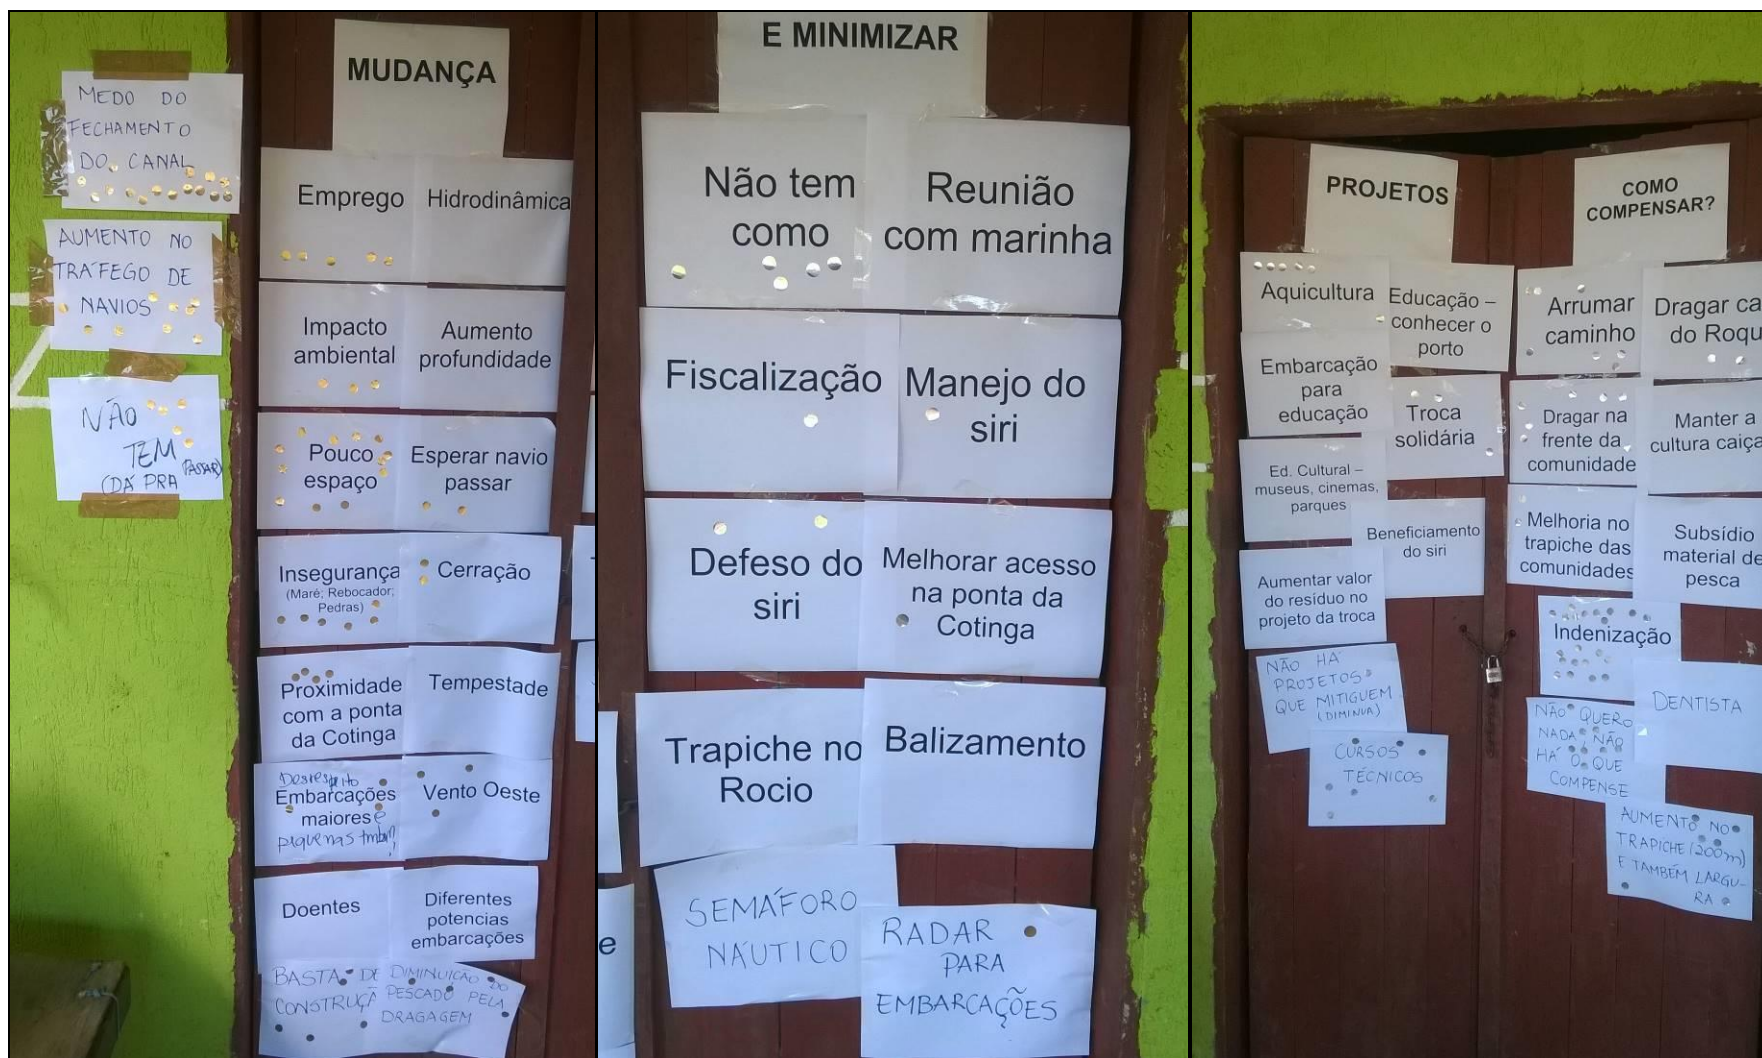 MEDO DO
FECHAMENTO
DO CANAL
AUMENTO NO
TRÁFEGO DE
NAVIOS
NÃO
TEM
(DÁ PRA PASSAR)
MUDANÇA
Emprego
Hidrodinâmica
Impacto
ambiental
Aumento
profundidade
Pouco
espaço
Esperar navio
passar
Insegurança
(Maré; Rebocador;
Pedras)
Cerração
Proximidade
com a ponta
da Cotinga
Tempestade
Embarcações
maiores e
pequenas tmbm!
Vento Oeste
Doentes
Diferentes
potencias
embarcações
BASTA DE
CONSTRUÇÃ
DIMINUIÇÃO DO
PESCADO PELA
DRAGAGEM
E MINIMIZAR
Não tem
como
Reunião
com marinha
Fiscalização
Manejo do
siri
Defeso do
siri
Melhorar acesso
na ponta da
Cotinga
Trapiche no
Rocio
Balizamento
SEMÁFORO
NÁUTICO
RADAR
PARA
EMBARCAÇÕES
e
PROJETOS
Aquicultura
Educação –
conhecer o
porto
Embarcação
para
educação
Troca
solidária
Ed. Cultural –
museus, cinemas,
parques
Beneficiamento
do siri
Aumentar valor
do resíduo no
projeto da troca
NÃO HÁ
PROJETOS
QUE MITIGUEM
(DIMINUA)
CURSOS
TÉCNICOS
COMO
COMPENSAR?
Arrumar
caminho
Dragar ca
do Roqu
Dragar na
frente da
comunidade
Manter a
cultura caiça
Melhoria no
trapiche das
comunidades
Subsídio
material de
pesca
Indenização
DENTISTA
NÃO QUERO
NADA, NÃO
HÁ O QUE
COMPENSE
AUMENTO NO
TRAPICHE (200m)
E TAMBÉM LARGU-
RA